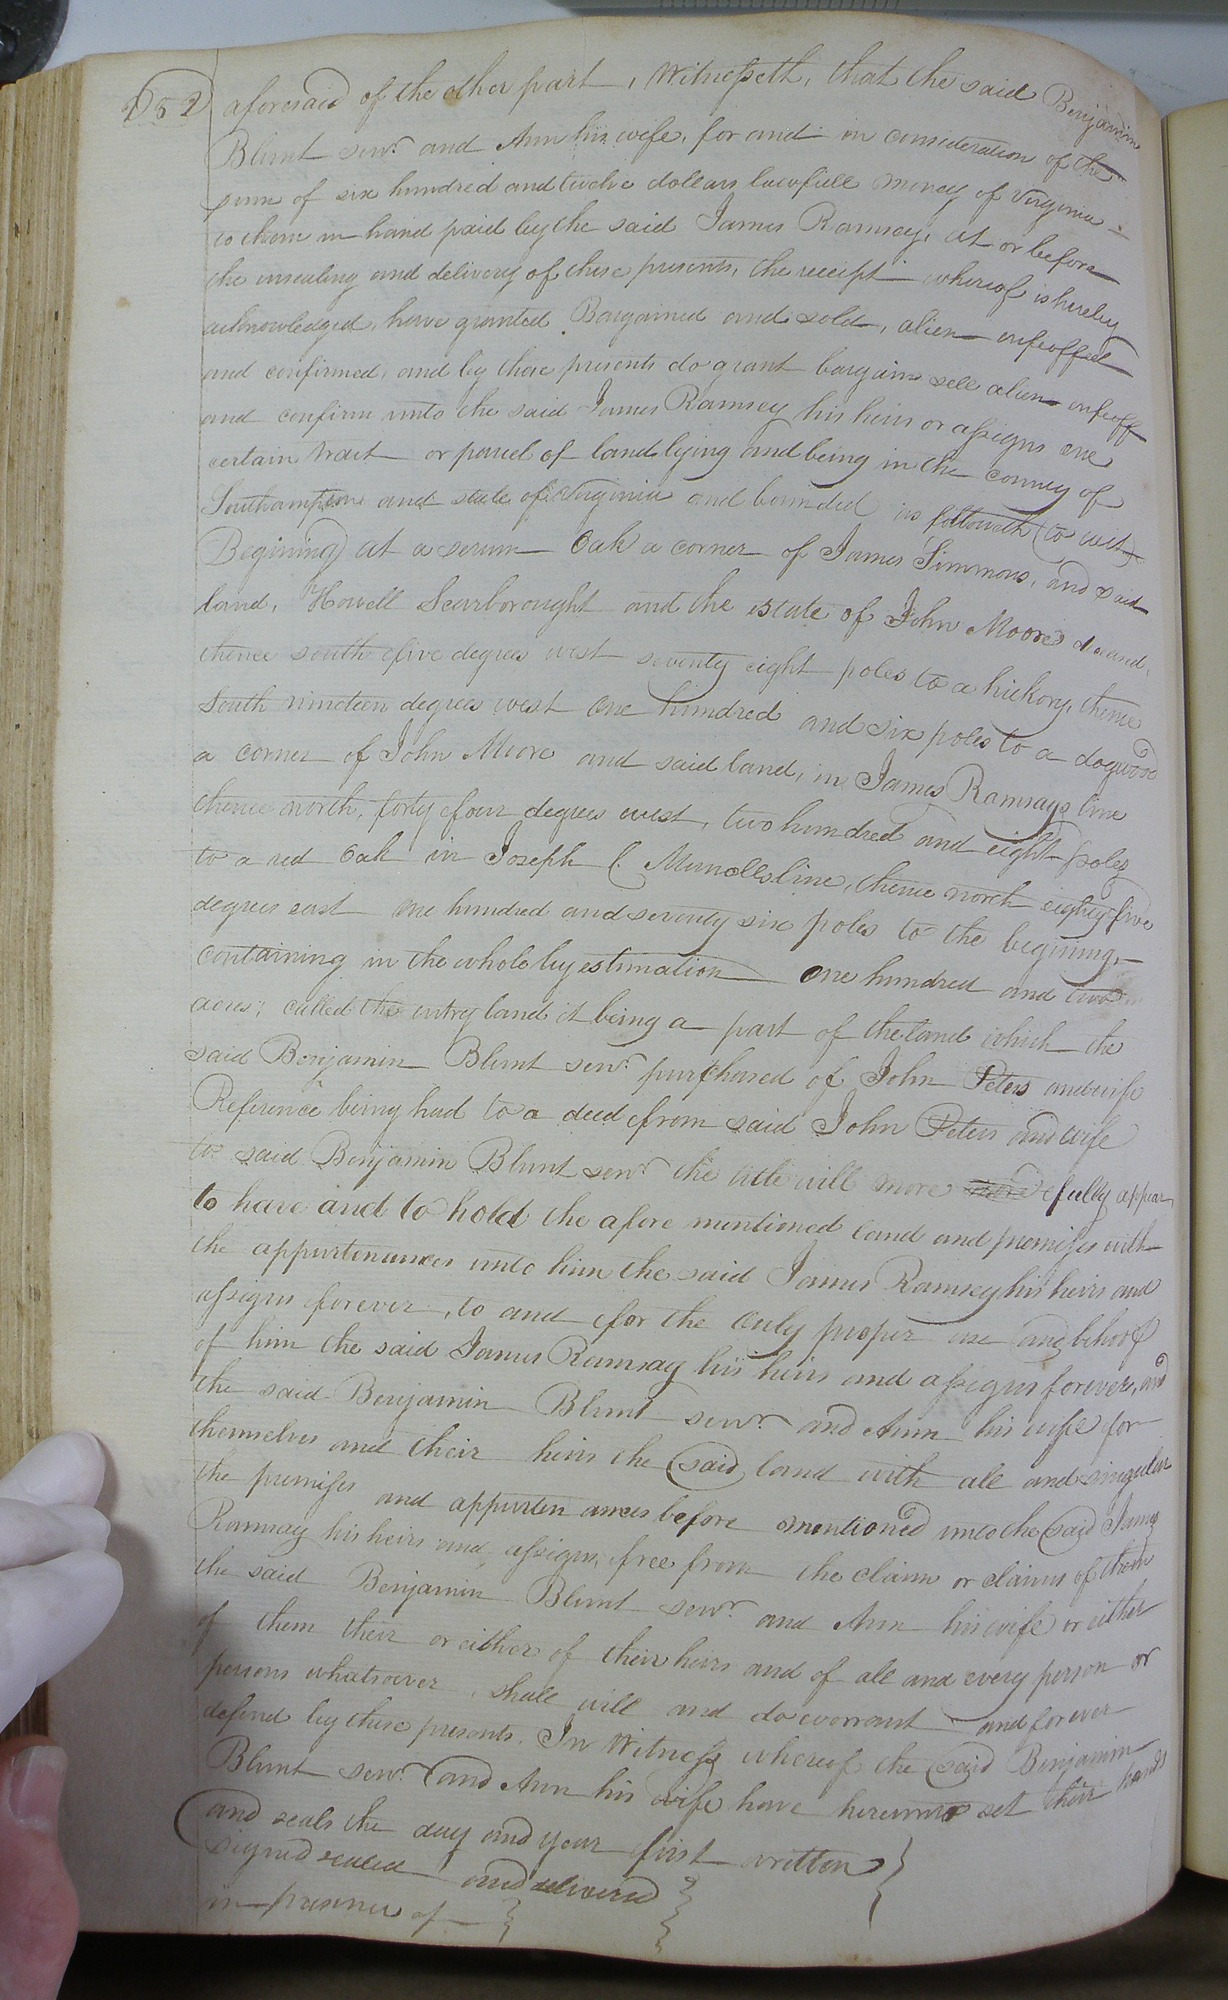 252 aforesaid of the other part, Witnesseth, that the said Benjamin
Blunt senr. and Ann his wife, for and in consideration of the
sum of six hundred and twelve dollars lawfull money of Virginia
to them in hand paid by the said James Ramsay, at or before
the ensealing and delivery of these presents, the receipt whereof is hereby
acknowledged, have granted Bargained and sold, alien enfeoffed
and confirmed, and by these presents do grant bargain sell alien enfeoff
and confirm unto the said James Ramsey his heirs or assigns one
certain tract or parcel of land lying and being in the county of
Southampton and state of Virginia and bounded as followeth (to wit)
Begining) at a Oak a corner of James Simmons, and said
land, Howell Scarborought and the estate of John Moore
thence south five degrees west seventy eight poles to a hickory, thence
South nineteen degrees west One hundred and six poles to a dogwood
a corner of John Moore and said land, in James Ramsays line
thence north, forty four degrees west, two hundred and eight poles
to a red Oak in Joseph line, thence north eighty five
degrees east one hundred and seventy six poles to the begining,
containing in the whole by estimation one hundred and two
acres; called the entry land it being a part of the land which the
said Benjamin Blunt senr. purchased of John Peters and wife
Reference being had to a deed from said John Peters and wife
to said Benjamin Blunt senr. the title will more fully appear
to have and to hold the afore mentioned land and premises with
the appurtenances unto him the said James Ramsey his heirs and
assigns forever, to and for the Only proper use and behoof
of him the said James Ramsay his heirs and assigns forever, and
the said Benjamin Blunt senr. and Ann his wife for
themselves and their heirs the said land with all and singular
the premises and appurten ances before mentioned unto the said James
Ramsay his heirs and assigns, free from the claim or claims of them
the said Benjamin Blunt senr. and Ann his wife or either
of them their or either of their heirs and of all and every person or
persons whatsoever shall will and do warrant and forever
defend by these presents. In Witness whereof the said Benjamin
Blunt senr. and Ann his wife have hereunto set their hands
and seals the day and year first written
signed sealed and delivered
in presence of